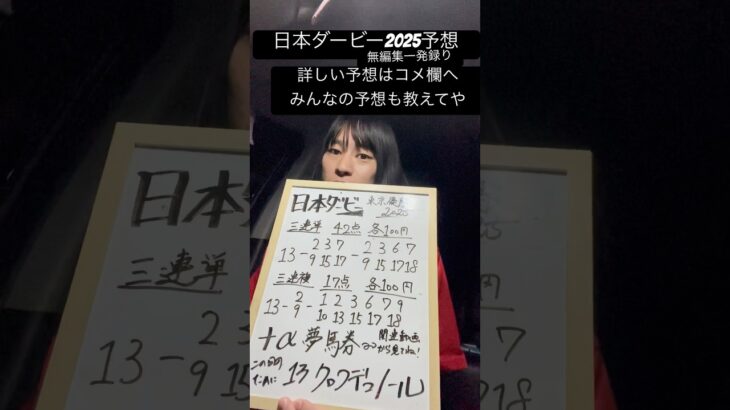 日本ダービー2025予想
無編集一発録り
詳しい予想はコメ欄へ
みんなの予想も教えてや
日本ダービー 東京優駿 2025
三連単 42点 各100円
2 3 7 2 3 6 7
13-9 15 17-9 15 17 18
三連複 17点 各100円
2 1 2 3 6 7 9
13-9-10 13 15 17 18
+α 夢馬券 関連動画
から見てね!
2 3 7
13-9 15 17
この日の
ために 13 クロワデュノール